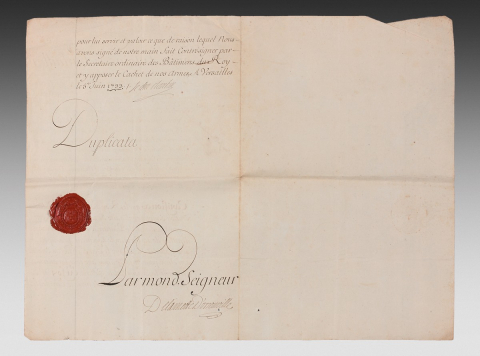 pour lui servir et valoir ce que de raison lequel Nous
avons signé de notre main fait Contresigner par
le Secretaire ordinaire des Bâtimens du Roy
et y apposer le Cachet de nos Armes a Versailles
le 6 Juin
Duplicata
Par mond. Seigneur